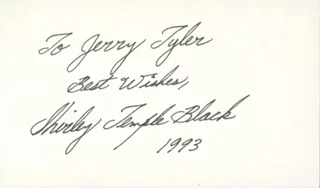 To Jerry Tyler
Best Wishes,
Shirley Temple Black
1993